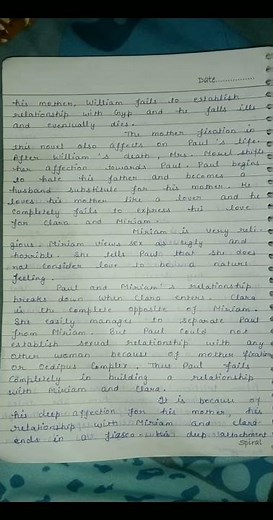 Date..............
his mother. William fails to establish
relationship with Gyp and he falls ills
and eventually dies.
The mother fixation in
this novel also affects on Paul's life.
After William's death, Mrs. Morel shifts
her affection towards Paul. Paul begins
to hate his father and becomes a
husband substitute for his mother. He
loves his mother like a lover and he
completely fails to express his love
for Clara and Miriam.
Miriam is very reli-
gious. Miriam views sex as ugly and
horrible. She tells Paul that she does
not consider love to be a nature
feeling.
Paul and Miriam's relationship
breaks down when Clara enters. Clara
is the complete opposite of Miriam.
She easily manages to separate Paul
from Miriam. But Paul could not
establish sexual relationship with any
other woman because of mother fixation
or Oedipus Complex. Thus Paul fails
completely in building a relationship
with Miriam and Clara.
It is because of
his deep affection for his mother, his
relationship with Miriam and Clara
ends in a fiasco. His deep attachment
Spiral